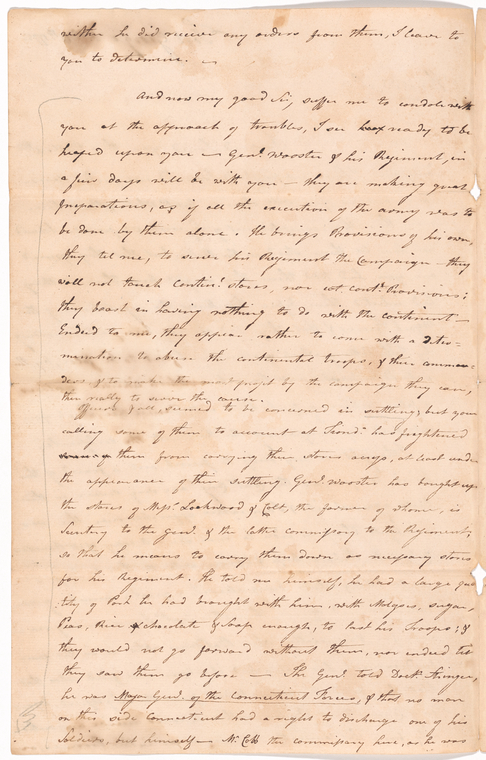 neither he did receive any orders from them, I leave to
you to determine. —
And now my good Sir, suffer me to condole with
you at the approach of troubles, I see ready to be
heaped upon you — Genl. Wooster & his Regiment, in
a few days will be with you — they are making great
preparations, as if all the execution of the army was to
be done by them alone. He brings Provisions of his own,
they tel me, to serve his Regiment the Campaign — they
will not touch Continl. stores, nor eat Contl. Provisions;
they boast in having nothing to do with the continent —
Indeed to me, they appear rather to come with a deter-
mination to abuse the continental troops, & their comman-
ders, & to make the most profit by the campaign they can,
then really to serve the cause.
Officers all, seemed to be concerned in suttling; but your
calling some of them to account at Ticond. has frightened
them from carrying their stores across, at least under
the appearance of their suttling. Genl. Wooster has bought up
the stores of Messrs. Lockwood & Colt, the former of whom, is
Secretary to the Genl. & the latter commissary to the Regiment;
so that he means to carry them down as necessary stores
for his Regiment. He told me himself, he had a large quan
tity of Pork he had brought with him, with Molasses, sugar,
Peas, Rice & chocolate & Soap enough, to last his Troops; &
they would not go forward without them, nor indeed till
they saw them go before — The Genl. told Doctr. Stringer,
he was Major Genl. of the Connecticut Forces, & that no man
on this side Connecticut had a right to discharge one of his
Soldiers, but himself — Mr. Colt the commissary here, as he was